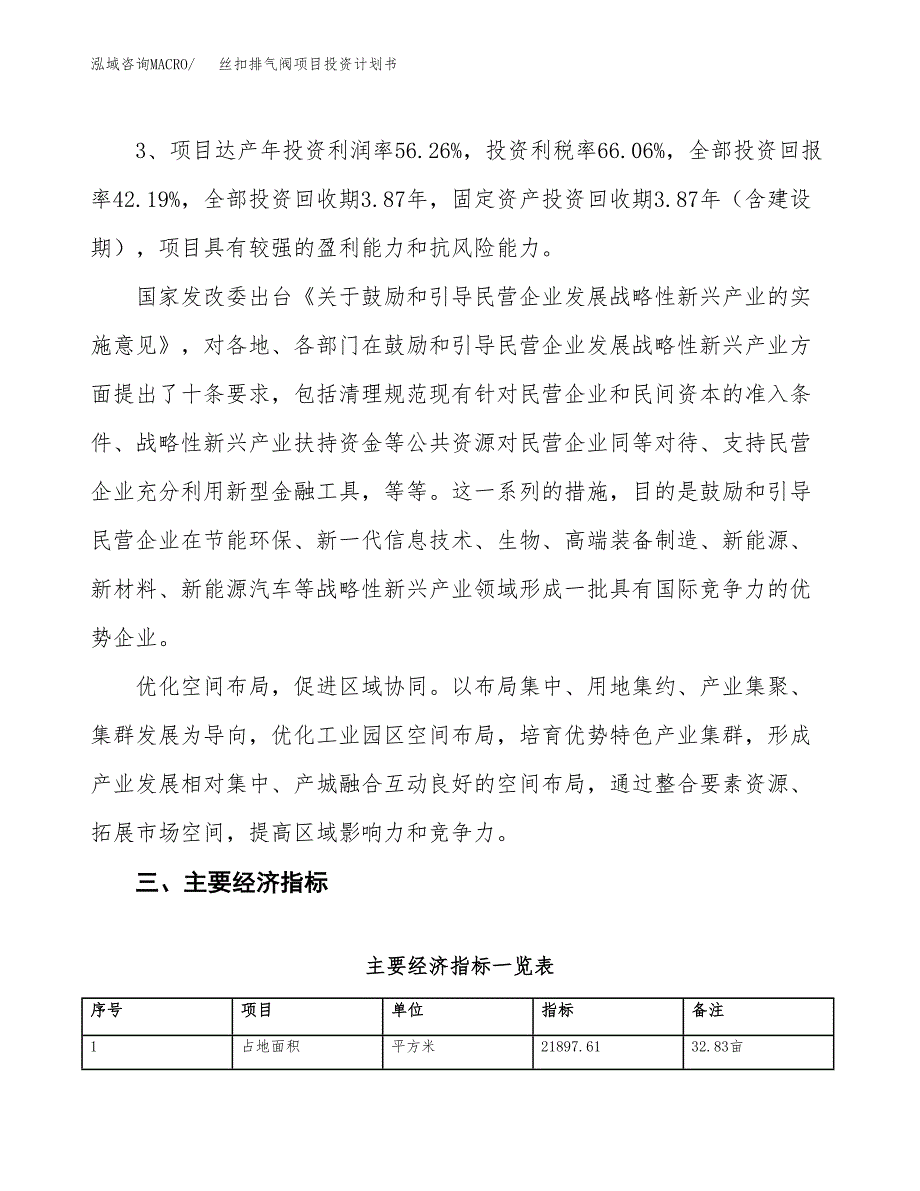 泓域咨询MACRO/ 丝扣排气阀项目投资计划书
3、项目达产年投资利润率56.26%，投资利税率66.06%，全部投资回报
率42.19%，全部投资回收期3.87年，固定资产投资回收期3.87年（含建设
期），项目具有较强的盈利能力和抗风险能力。
国家发改委出台《关于鼓励和引导民营企业发展战略性新兴产业的实
施意见》，对各地、各部门在鼓励和引导民营企业发展战略性新兴产业方
面提出了十条要求，包括清理规范现有针对民营企业和民间资本的准入条
件、战略性新兴产业扶持资金等公共资源对民营企业同等对待、支持民营
企业充分利用新型金融工具，等等。这一系列的措施，目的是鼓励和引导
民营企业在节能环保、新一代信息技术、生物、高端装备制造、新能源、
新材料、新能源汽车等战略性新兴产业领域形成一批具有国际竞争力的优
势企业。
优化空间布局，促进区域协同。以布局集中、用地集约、产业集聚、
集群发展为导向，优化工业园区空间布局，培育优势特色产业集群，形成
产业发展相对集中、产城融合互动良好的空间布局，通过整合要素资源、
拓展市场空间，提高区域影响力和竞争力。
三、主要经济指标
主要经济指标一览表
序号 项目 单位 指标 备注
1 占地面积 平方米 21897.61 32.83亩